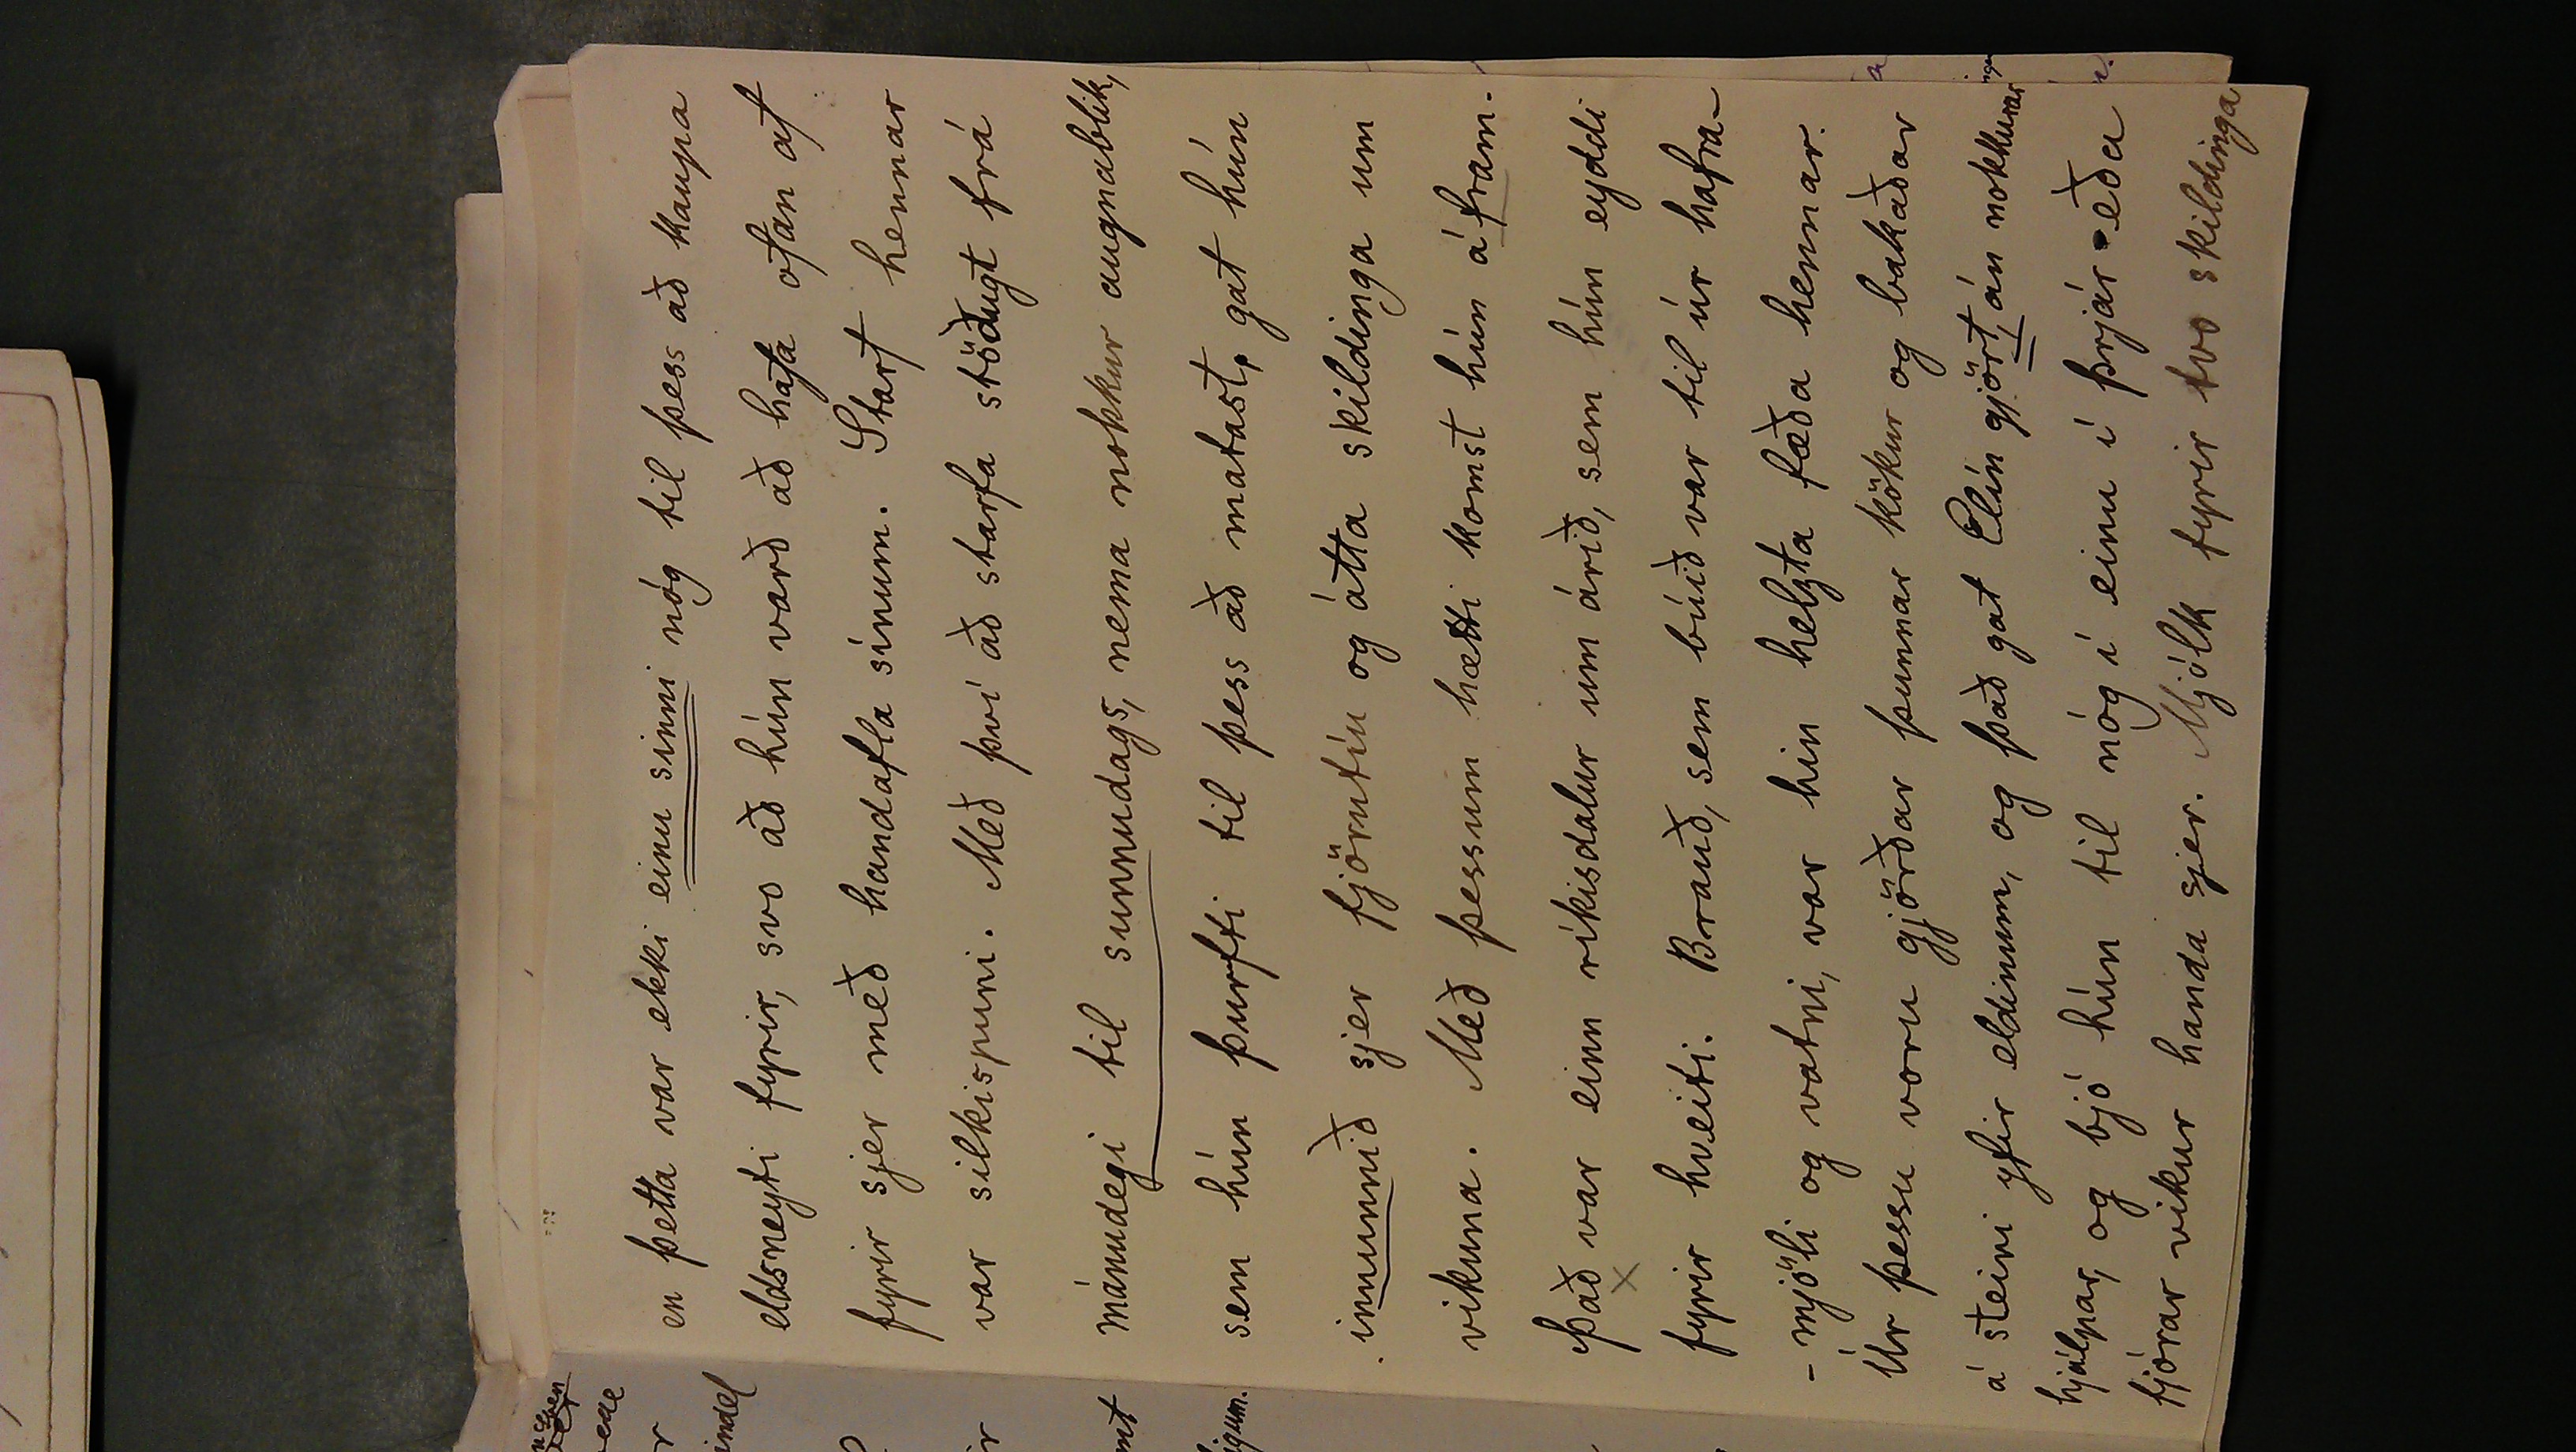 en þetta var ekki einu sinni nóg til þess að kaupa
eldsneyti fyrir, svo að hún varð að hafa ofan af
fyrir sjer með handafla sínum. Starf hennar
var silkispuni. Með því að starfa stöðugt frá
mánudegi til sunnudags, nema nokkur augnablik,
sem hún þurfti til þess að matast, gat hún
innunnið sjer fjörutíu og átta skildinga um
vikuna. Með þessum hætti komst hún áfram.
Það var einn ríkisdalur um árið, sem hún eyddi
fyrir hveiti. Brauð, sem búið var til úr hafra-
-mjöli og vatni, var hin helzta fæða hennar.
Úr þessu voru gjörðar þunnar kökur og bakaðar
á steini yfir eldinum, og það gat Elín gjört, án nokkurrar
hjálpar, og bjó hún til nóg í einu í þrjár eða
fjórar vikur handa sjer. Mjólk fyrir tvo skildinga